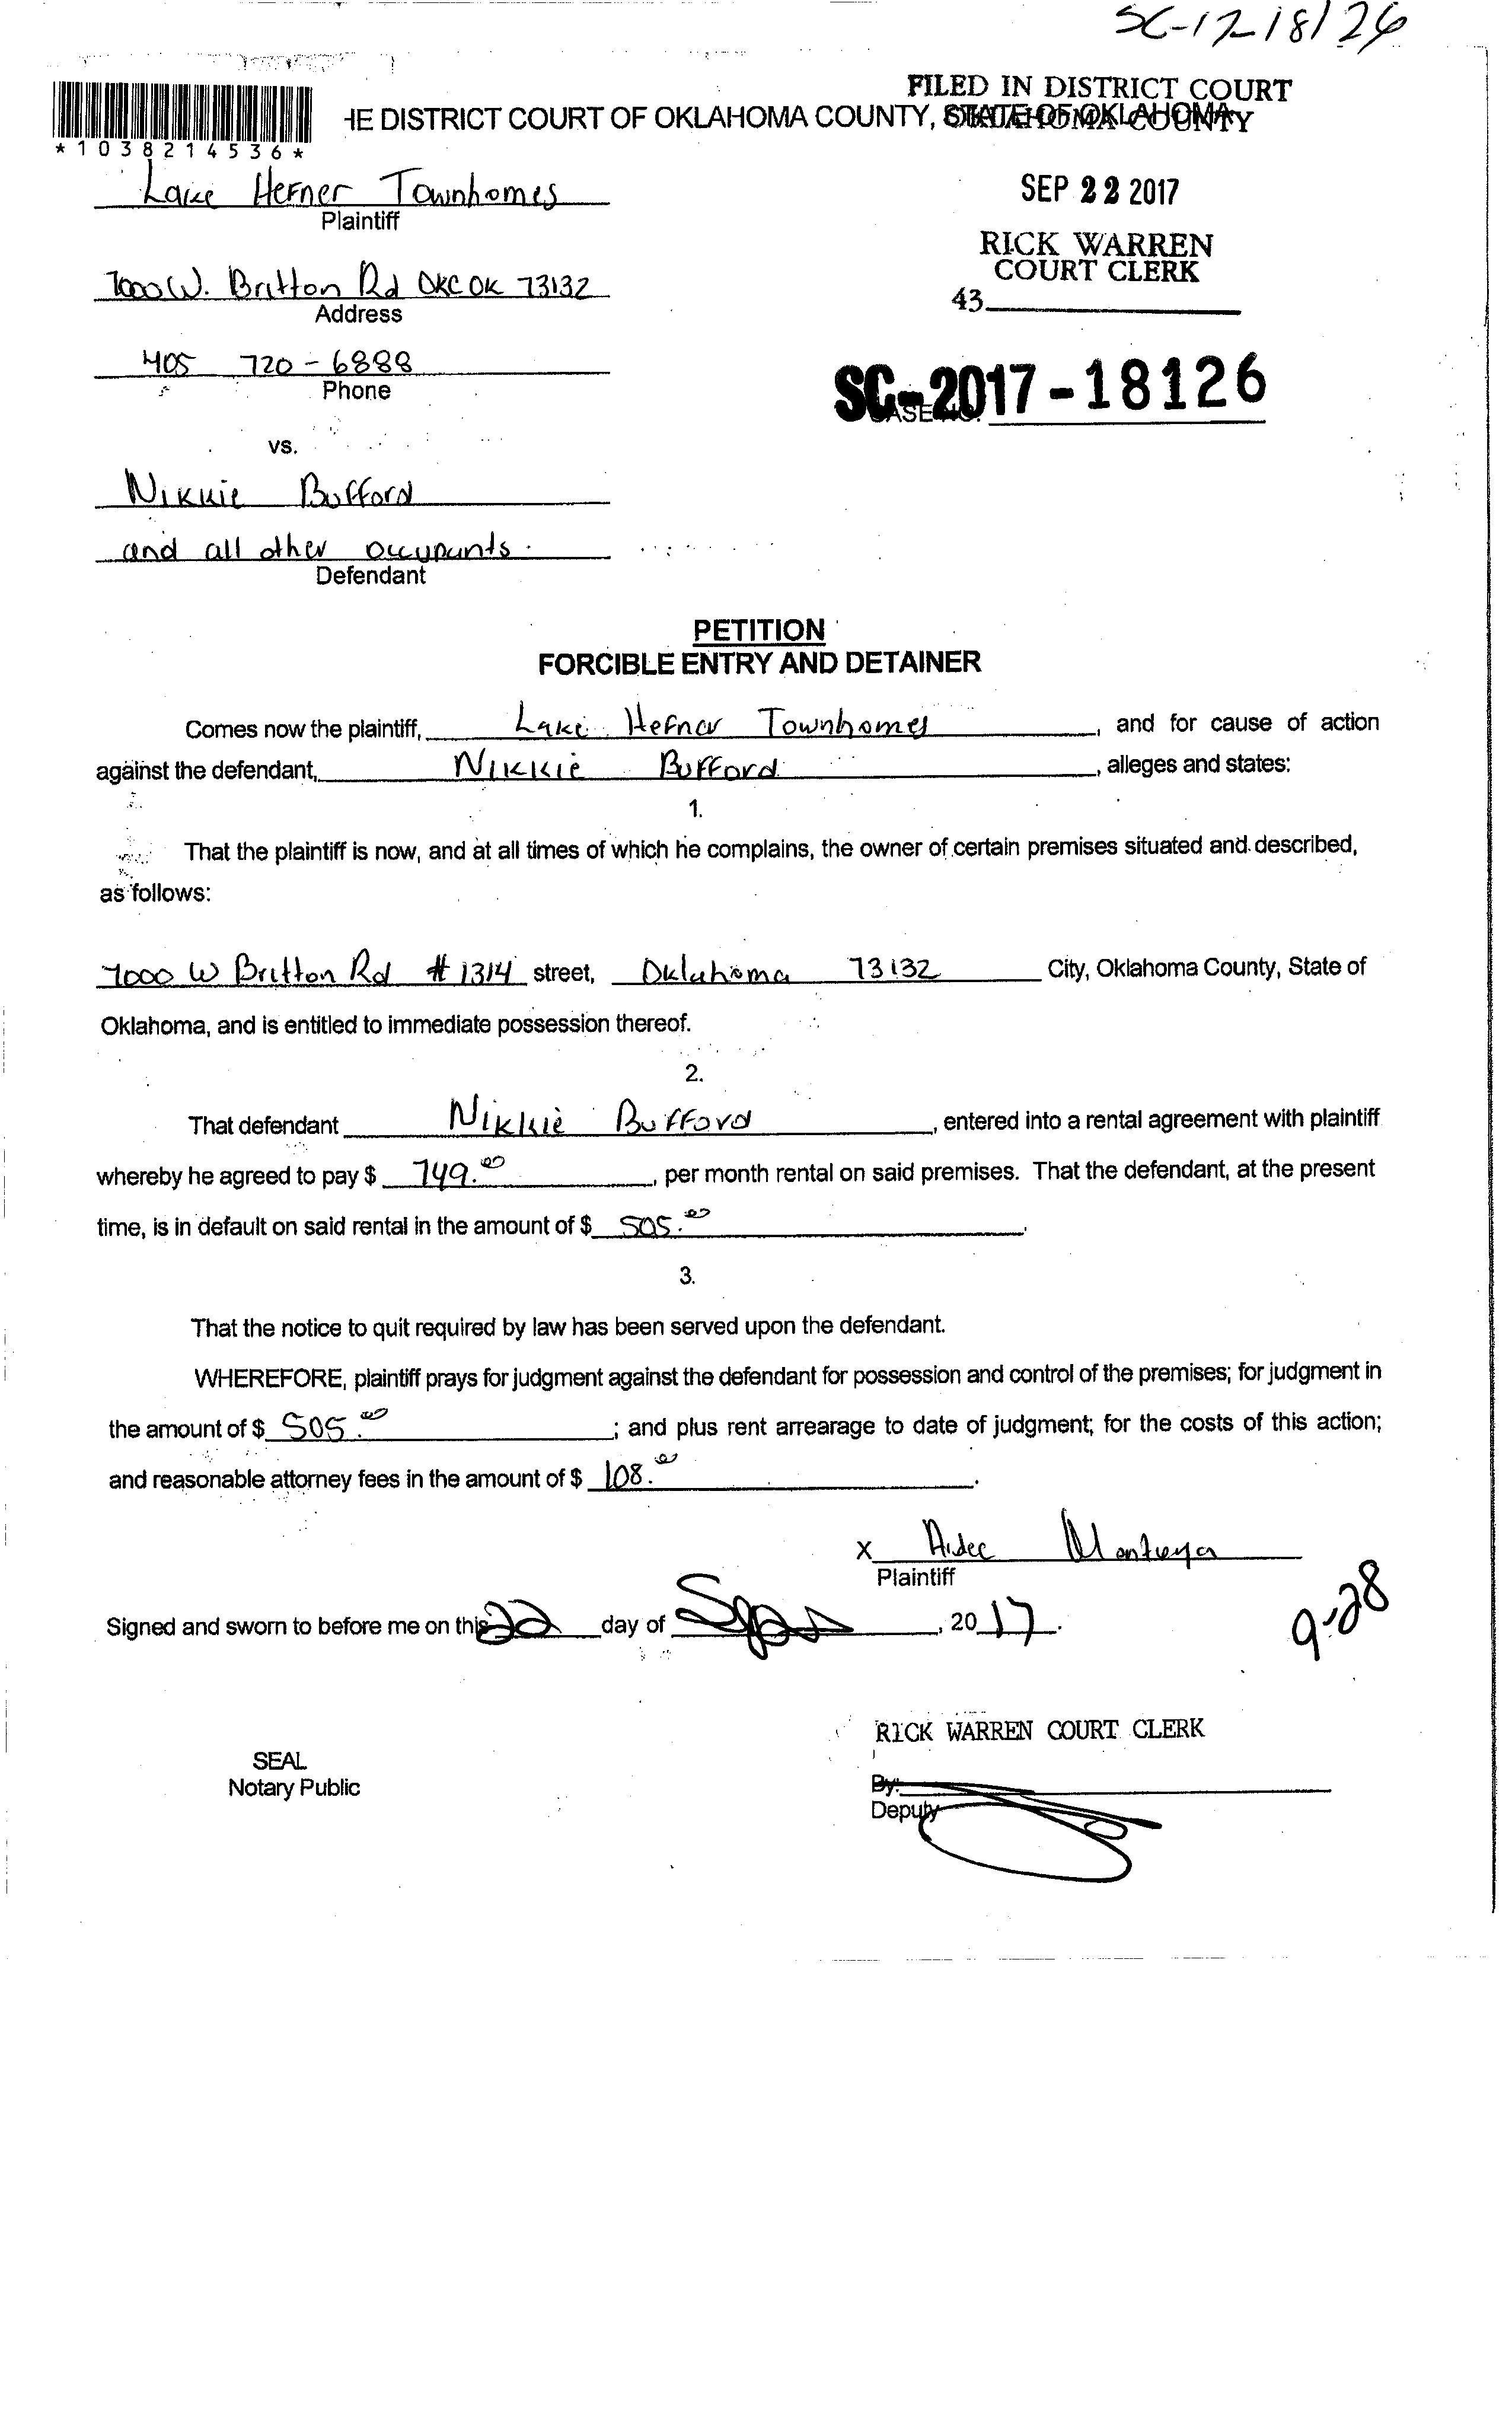 SC-17-18126
FILED IN DISTRICT COURT
OKLAHOMA COUNTY
HE DISTRICT COURT OF OKLAHOMA COUNTY, STATE OF OKLAHOMA
*1038214536*
Lake Hefner Townhomes
Plaintiff
SEP 22 2017
RICK WARREN
COURT CLERK
43
7000 W. Britton Rd OKC OK 73132
Address
405 720-6888
Phone
SC-2017-18126
CASE NO.
vs.
Nikkie Bufford
and all other occupants.
Defendant
PETITION
FORCIBLE ENTRY AND DETAINER
Comes now the plaintiff, Lake Hefner Townhomes, and for cause of action
against the defendant, Nikkie Bufford, alleges and states:
1.
That the plaintiff is now, and at all times of which he complains, the owner of certain premises situated and described,
as follows:
7000 W Britton Rd #1314 street, Oklahoma 73132 City, Oklahoma County, State of
Oklahoma, and is entitled to immediate possession thereof.
2.
That defendant Nikkie Bufford, entered into a rental agreement with plaintiff
whereby he agreed to pay $ 749.00, per month rental on said premises. That the defendant, at the present
time, is in default on said rental in the amount of $ 505.00.
3.
That the notice to quit required by law has been served upon the defendant.
WHEREFORE, plaintiff prays for judgment against the defendant for possession and control of the premises; for judgment in
the amount of $ 505.00; and plus rent arrearage to date of judgment; for the costs of this action;
and reasonable attorney fees in the amount of $ 108.00.
X
Plaintiff
Signed and sworn to before me on this 22 day of , 2017.
9-28
RICK WARREN COURT CLERK
SEAL
Notary Public
By:
Deputy